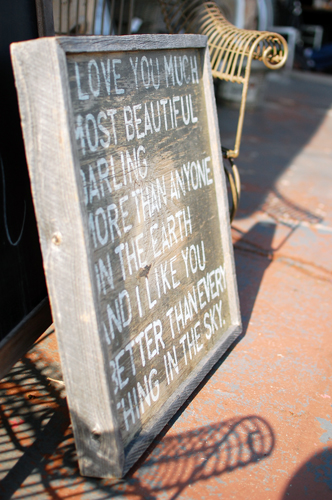 LOVE YOU MUCH
MOST BEAUTIFUL
DARLING
MORE THAN ANYONE
IN THE EARTH
AND I LIKE YOU
BETTER THAN EVERY
THING IN THE SKY.